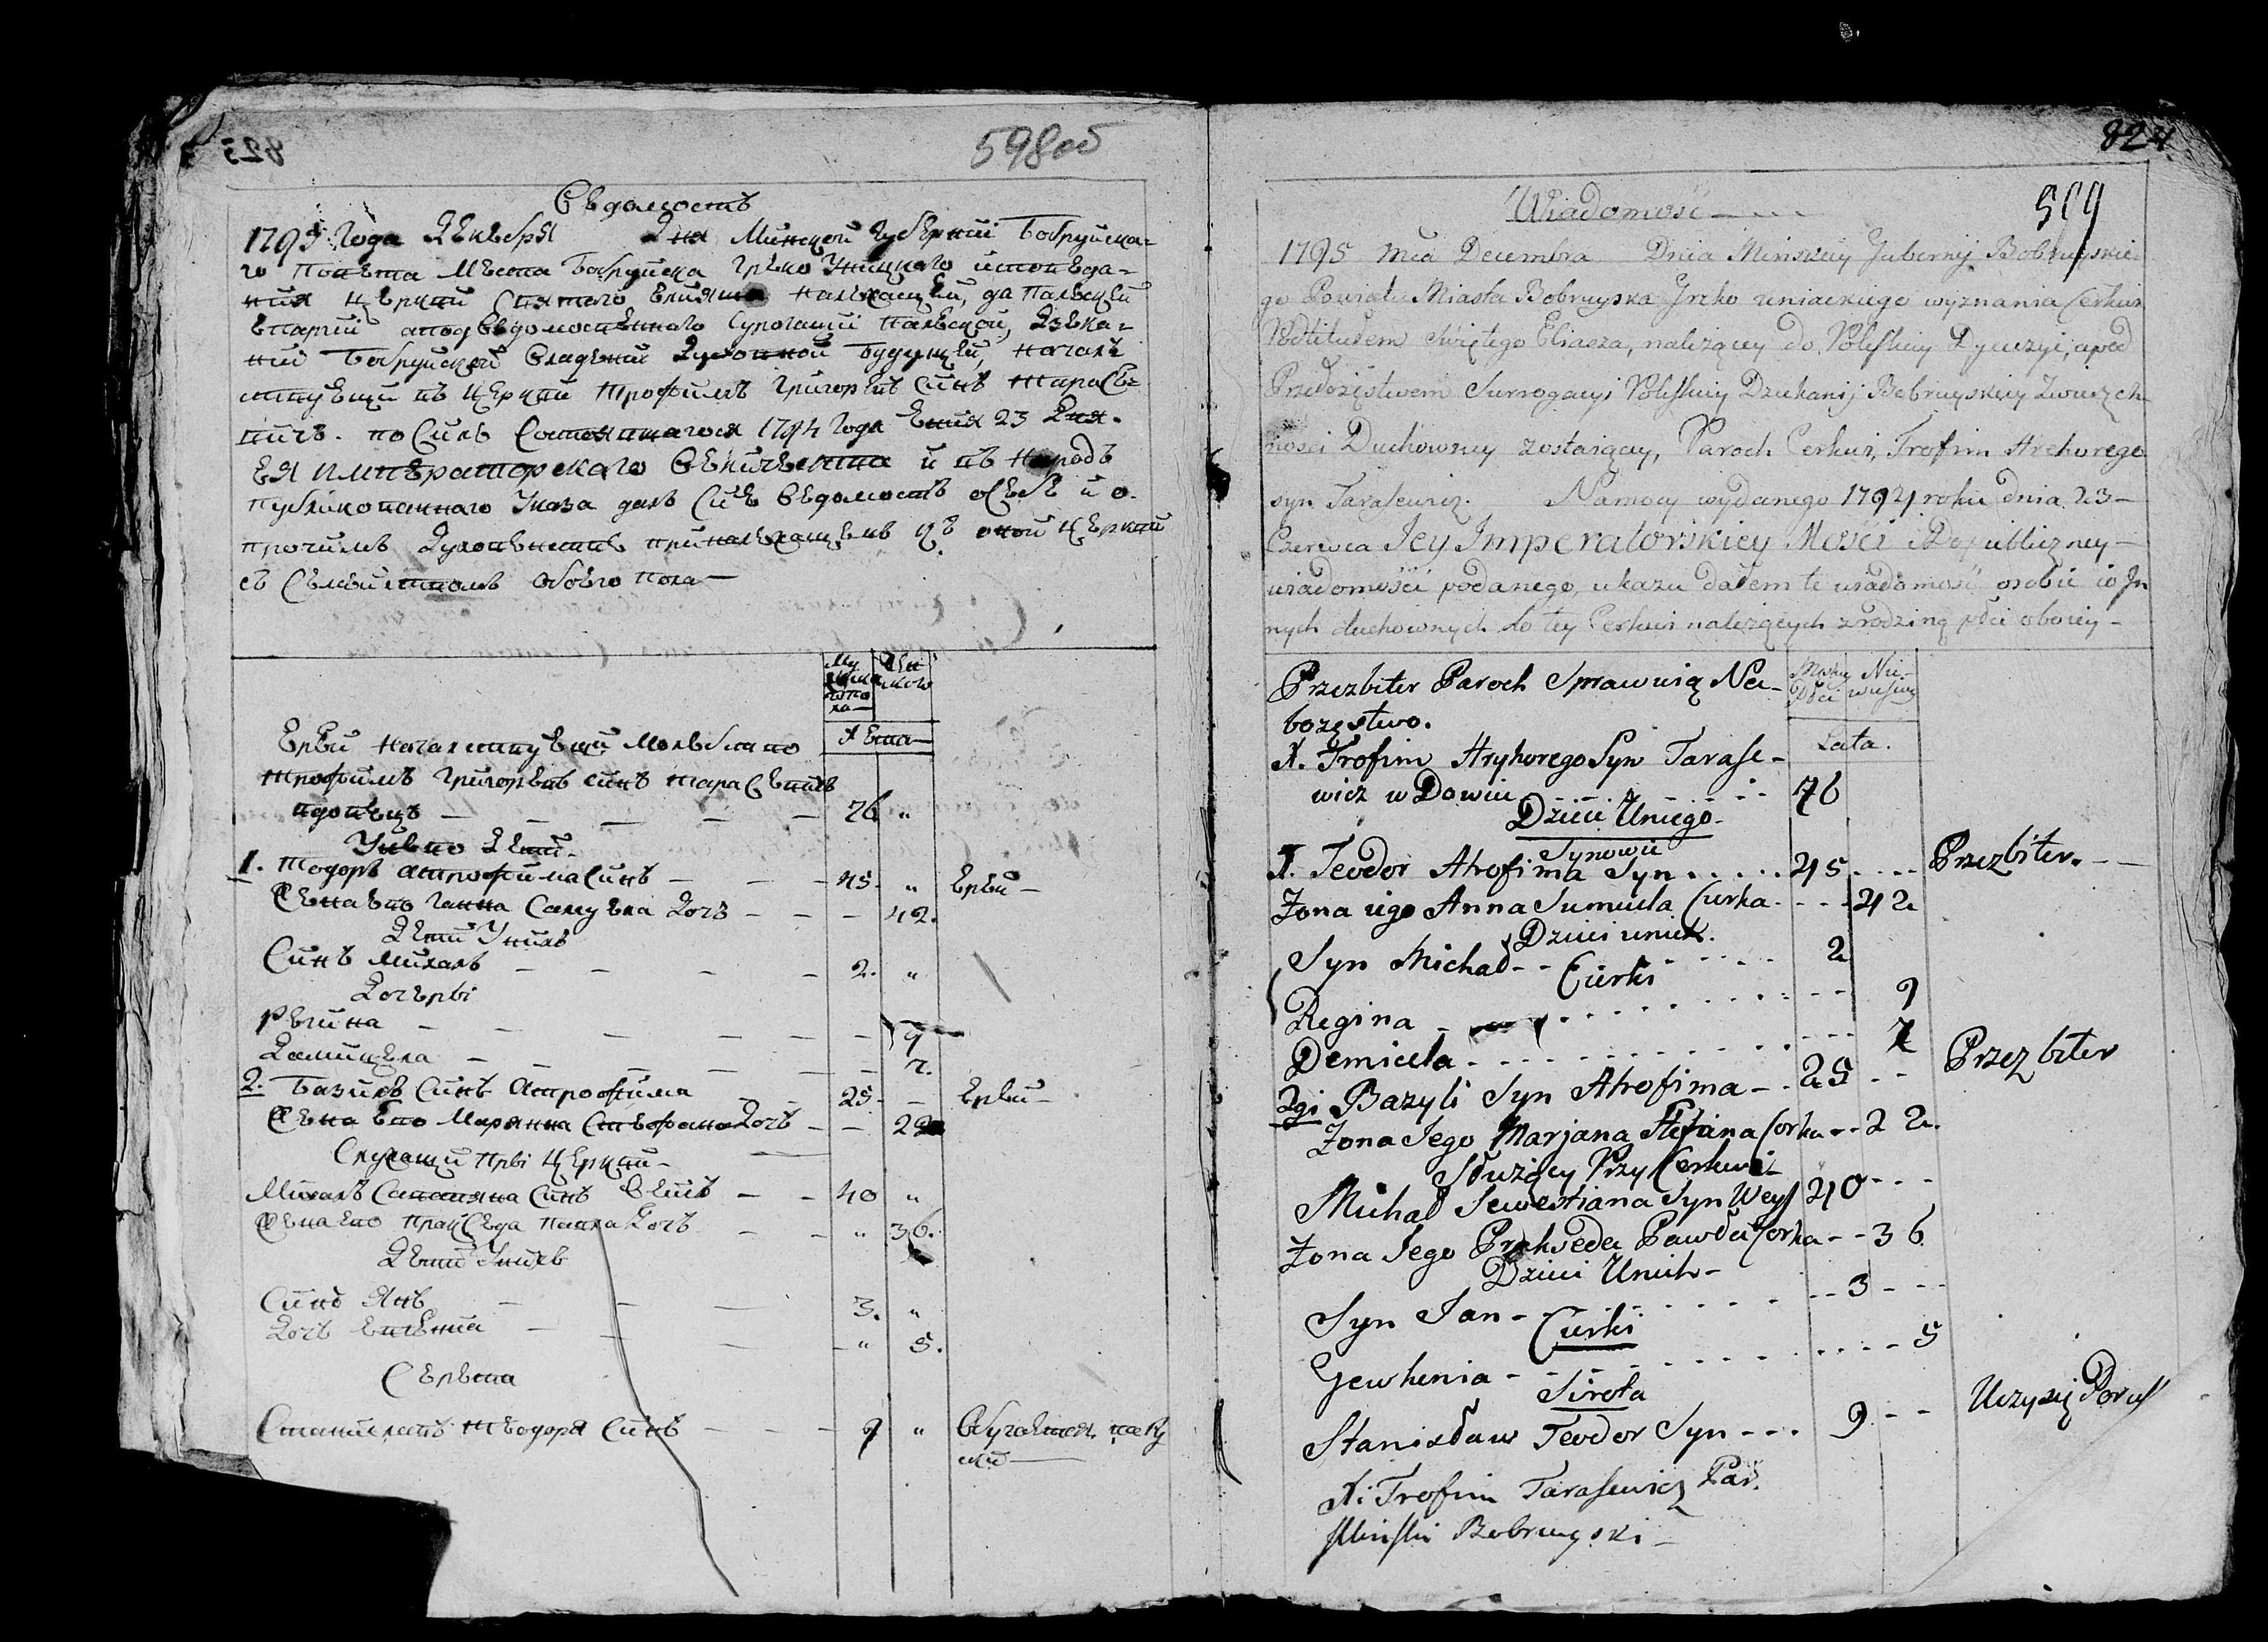 598об
Ведомость
1795 Года Декабря Дня Минской Губернии Бобруйска-
го Повета Места Бобруйска Греко Уницкого исповеда-
ния Церкви Святого Елияша належащей, да Полеской
Епархии аподведомостенного Сурогации Полеской, Декa-
нии Бобруйской Владении Духовной будущей, Началь
ствующи въ Церкви Трофимъ Григоревъ Синъ Тарасе-
вичъ. по Силе Состоявшагося 1794 Года Июня 23 Дня.
Ея Императорскаго Величества и въ Народъ
публикованного Указа далъ Сию Ведомость о себе и о
прочимъ Духовенстве приналежащемъ къ оной Церкви
съ Семействомъ Обоего пола—
Му
жска
пола
Жен
ского
Лета—
Ерей Началствующи Молебство
Трофимъ Григоревъ синъ Тарасевичъ
вдовецъ — — — — 76 "
У него Дети.
1. Тодоръ Атрофима Синъ — — — 45. " Ерей—
Жена его Ганна Самуела Дочь - - - 42.
Дети У нихъ
Синъ Михалъ — — — — 2. "
Дочери
Регина — — — — — 9
Домицела — — — — — 7.
2. Базиль Синъ Атрофима — — 25 - — Ерей—
Жена Его Марянна Стефана Дочь - — 22
Служащи при Церкви—
Михалъ Савастяна Синъ Веисъ — - 40 "
Жена его Праxседа Павла Дочь — - " 36.
Дети У нихъ
Синъ Янъ — — — 3. "
Дочь Евгения — — — - " 5.
Сирота
Станиславъ Теодора Синъ — — - 9 " Обучается науки
824
599
Wiadomość — - - -
1795 mca Decembra Dnia Minskiey Gubernij Bobruyskie-
go Powiatu Miasta Bobruyska Grzko uniackiego wyznania Cerkwi
Podtitułem świętego Eliasza, należący do Poleskiey Dyecezyi, apod
Przełożęstwem Surrogacyi Poleskiey Dziekanij Bobruyskiey Zwierzch-
ności Duchowney zostaiący, Paroch Cerkwi, Trofim Hrehorego
syn Tarasewicz. Namocy wydanego 1794 roku dnia 23—
Czerwca Jey Imperatorskiey Mości Do publiczney—
wiadomości podanego ukazu dałem te wiadomość osobie io In
nych duchownych do tey Cerkwi należących zrodziną płci oboiey-
Przezbiter Paroch Sprawuią Na-
bozęstwo.
Męskiey
Płci
Nie-
wiesciey
Lata.
X. Trofim Hryhorego Syn Tarase-
wicz wDowiec - - - - - 76
Dzieci Uniego-
Synowie
X. Teodor Atrofima Syn . . . . . 45 . . . . Przezbiter. - —
Zona iego Anna Sumuela Curka - - - 42
Dzieci unich.
Syn Michał - - - - - 2
Curki
Regina - - - - - 9
Demicela - - - - - 7
2gi Bazyli Syn Atrofima - - 25 - - Przezbiter
Zona Jego Marjana Stefana Corka - - 22.
Służący Przy Cerkwi-
Michał Sewestiana Syn Weys 40 - - -
Zona Jego Prakseda Pawła Corka - - 36
Dzieci Unich-
Syn Jan - - - - - 3 - - -
Curki
Gewhenia - - - - - 5
Sirota
Stanisław Teodor Syn - - - 9 - - Uczy się
X: Trofim Tarasewicz Par.
Bobruyski —